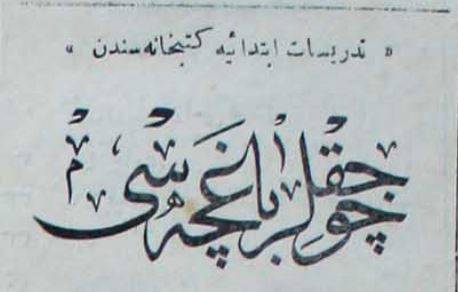 « تدريسات ابتدائيه كتبخانه سندن »
چوجقلر باغچه سى